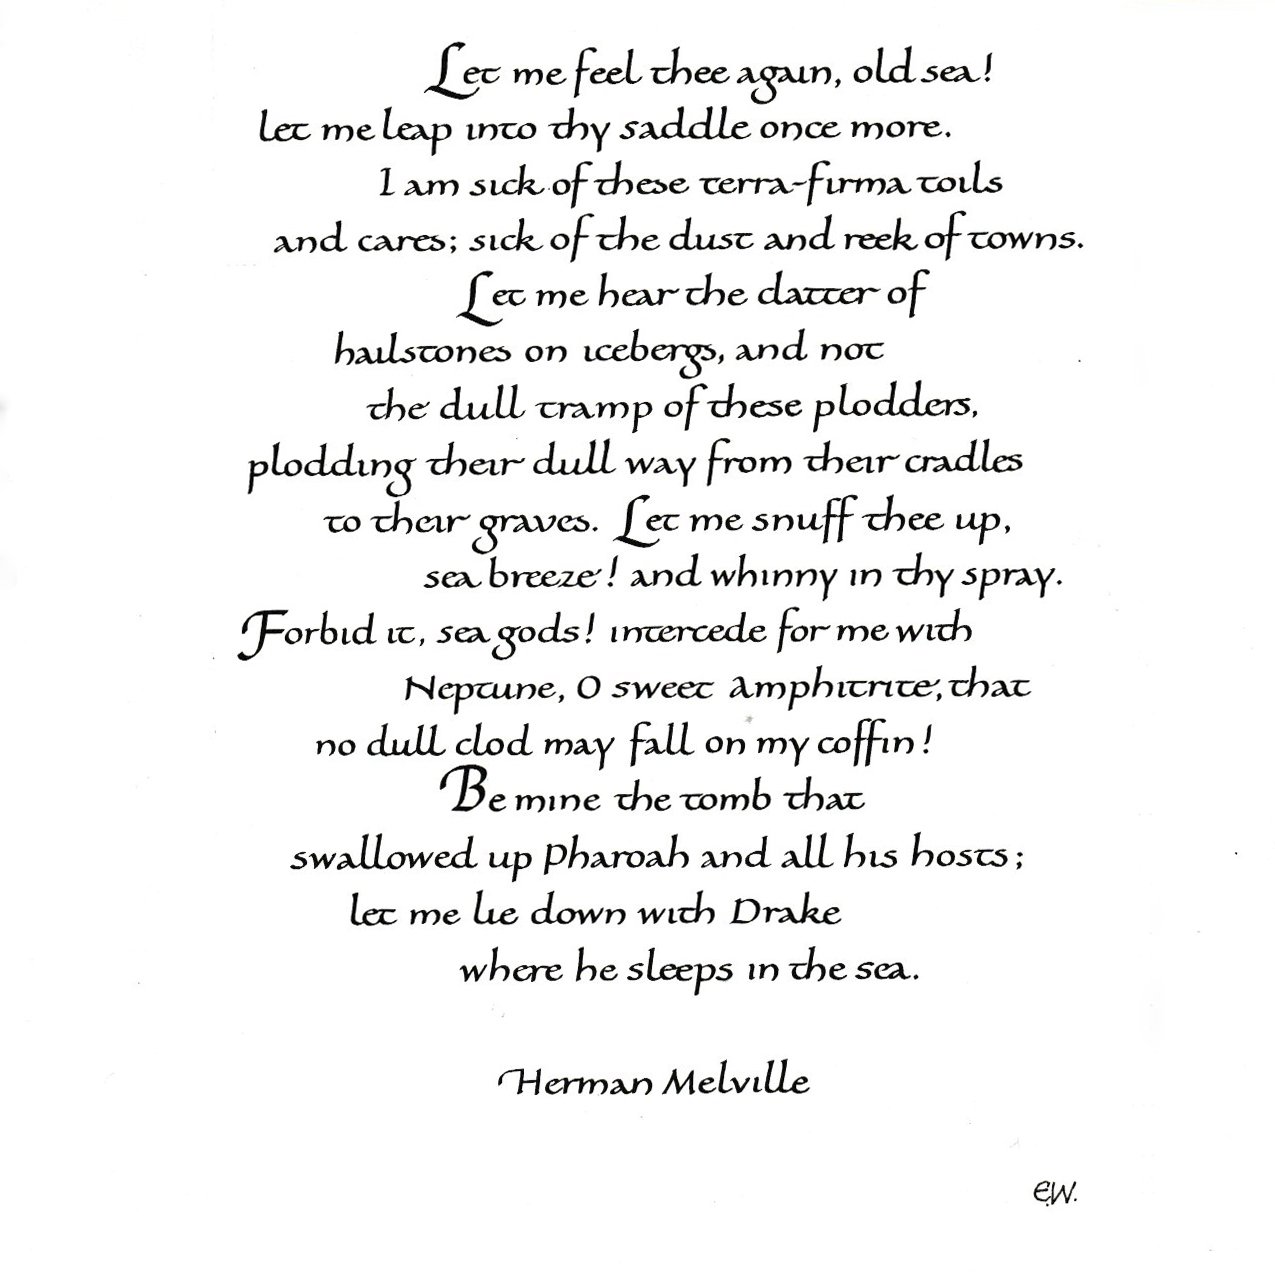 Let me feel thee again, old sea!
let me leap into thy saddle once more.
I am sick of these terra-firma toils
and cares; sick of the dust and reek of towns.
Let me hear the clatter of
hailstones on icebergs, and not
the dull tramp of these plodders,
plodding their dull way from their cradles
to their graves. Let me snuff thee up,
sea breeze! and whinny in thy spray.
Forbid it, sea gods! intercede for me with
Neptune, O sweet Amphitrite, that
no dull clod may fall on my coffin!
Be mine the tomb that
swallowed up Pharoah and all his hosts;
let me lie down with Drake
where he sleeps in the sea.
Herman Melville
E.W.